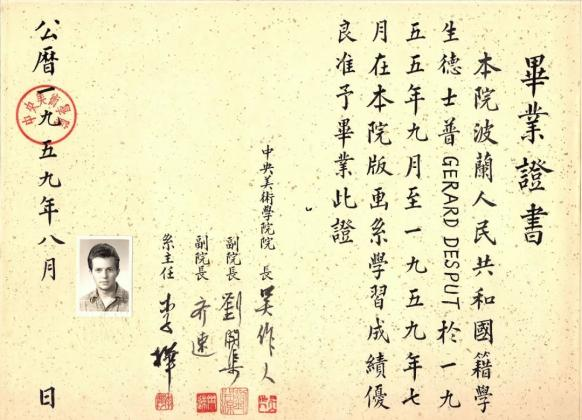 畢業證書
本院波蘭人民共和國籍學
生德士普 GERARD DESPUT 於一九
五五年九月至一九五九年七
月在本院版画系學習成績優
良准予畢業此證
中央美術學院院長 吴作人
副院長 劉開渠
副院長 齐速
系主任 李樺
公曆一九五九年八月 日
中央美術學院